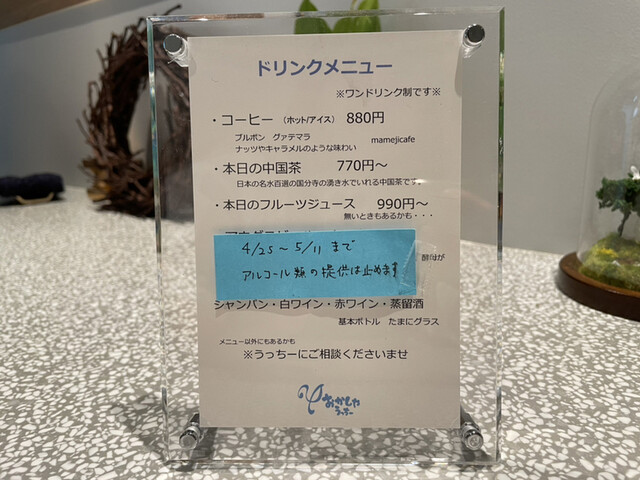 ドリンクメニュー
※ワンドリンク制です※
・コーヒー （ホット/アイス） 880円
ブルボン グァテマラ mamejicafe
ナッツやキャラメルのような味わい
・本日の中国茶 770円～
日本の名水百選の国分寺の湧き水でいれる中国茶です。
・本日のフルーツジュース 990円～
無いときもあるかも・・・
4/25～5/11まで
アルコール類の提供は止めます
シャンパン・白ワイン・赤ワイン・蒸留酒
基本ボトル たまにグラス
メニュー以外にもあるかも
※うっちーにご相談くださいませ
おかしや
うっちー